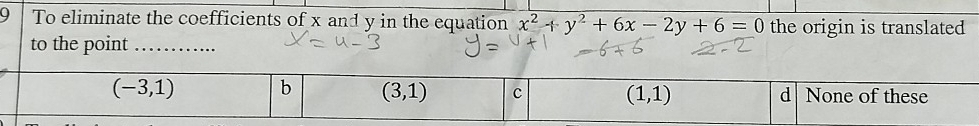 9 To eliminate the coefficients of x and y in the equation x² + y² + 6x − 2y + 6 = 0 the origin is translated
to the point ............
x = u-3 y = v+1 -6+6 2-2
(−3,1) b (3,1) c (1,1) d None of these